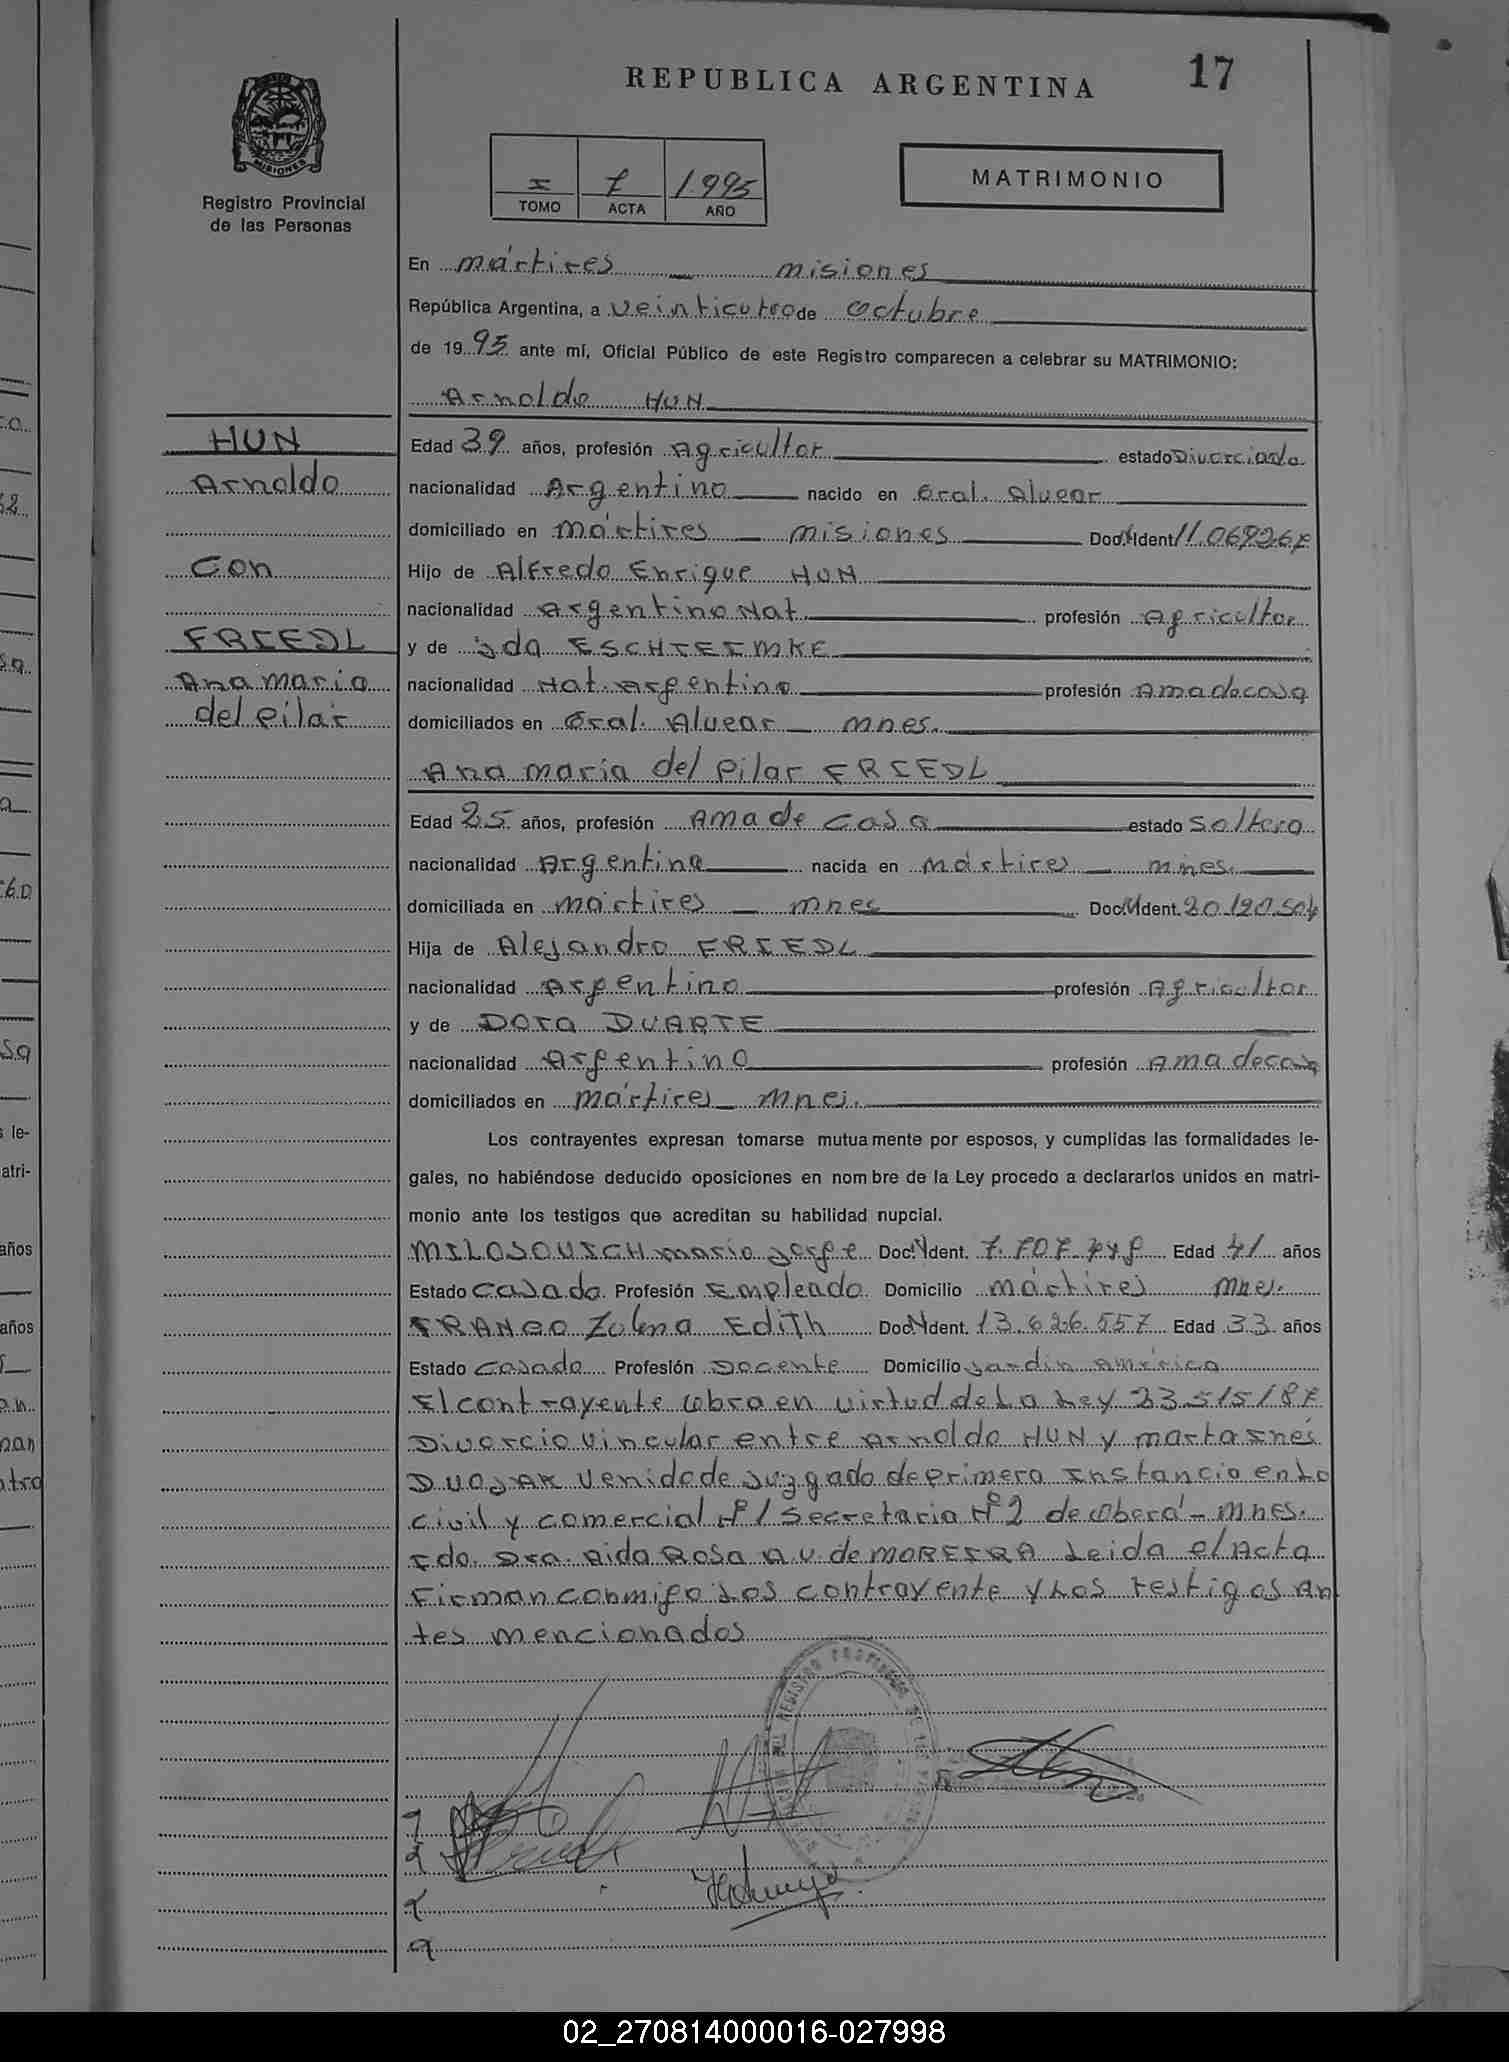 REPUBLICA ARGENTINA
17
MISIONES
Registro Provincial
de las Personas
I 7 1.995
TOMO ACTA AÑO
MATRIMONIO
En mártires misiones
República Argentina, a veinticutro de octubre
de 19 95 ante mí, Oficial Público de este Registro comparecen a celebrar su MATRIMONIO:
Arnoldo HUN
HUN
Arnoldo
Con
FRIEDL
Ana maria
del Pilar
Edad 39 años, profesión Agricultor estado Divorciado
nacionalidad Argentino nacido en Gral. Alvear
domiciliado en mártires misiones Doc. N Ident
Hijo de Alfredo Enrique HUN
nacionalidad Argentino Nat profesión Agricultor
y de Ida ESCHIEIMKE
nacionalidad Nat. Argentino profesión Ama de casa
domiciliados en Gral. Alvear mnes.
Ana maría del Pilar FRIEDL
Edad 25 años, profesión Ama de Casa estado Soltera
nacionalidad Argentina nacida en mártires mnes.
domiciliada en mártires mnes Doc. N Ident. 20.190.504
Hija de Alejandro FRIEDL
nacionalidad Argentino profesión Agricultor
y de DORA DUARTE
nacionalidad Argentino profesión Ama de casa
domiciliados en mártires mnes.
Los contrayentes expresan tomarse mutuamente por esposos, y cumplidas las formalidades le-
gales, no habiéndose deducido oposiciones en nombre de la Ley procedo a declararlos unidos en matri-
monio ante los testigos que acreditan su habilidad nupcial.
MILOSOVICH mario Jorge Doc. N Ident. Edad 41 años
Estado Casado Profesión Empleado Domicilio mártires mnes.
FRANCO Zulma Edith Doc N Ident. 13.626.557 Edad 33 años
Estado Casado Profesión Docente Domicilio Jardín América
El contrayente obra en virtud de la Ley 23.515/87
Divorcio vincular entre Arnoldo HUN y marta Inés
DUOJAK venido de Juzgado de Primera Instancia en lo
civil y comercial Nº 1 Secretaria Nº 2 de Oberá - mnes.
Fdo. Dra. Aida Rosa A.V. de MOREIRA Leida el Acta
Firman conmigo Los contrayente y Los testigos An
tes mencionados
02_270814000016-027998